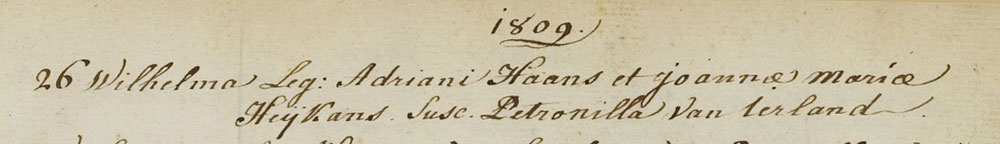 1809.
26 Wilhelma Leg: Adriani Haans et Joannæ Mariæ
Heijkans. Susc. Petronilla Van Ierland.